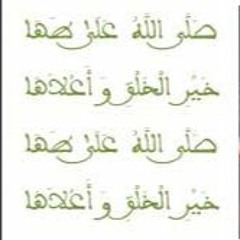 صَلَّى اللَّهُ عَلَى طَهَا
خَيْرِ الْخَلْقِ وَ أَحْلَاهَا
صَلَّى اللَّهُ عَلَى طَهَا
خَيْرِ الْخَلْقِ وَ أَحْلَاهَا